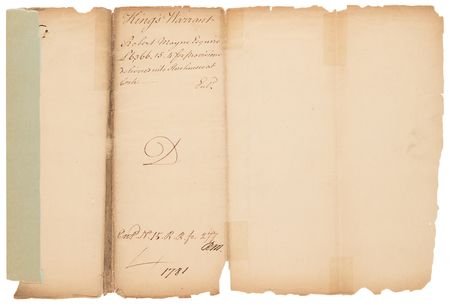 King's Warrant
Robert Mayne Esquire
£6366.15.4 for provisions
delivered into Storehouse at
Cork
Ent.d
D
Ent.d N.º 15. R.R. fo. 277
1781